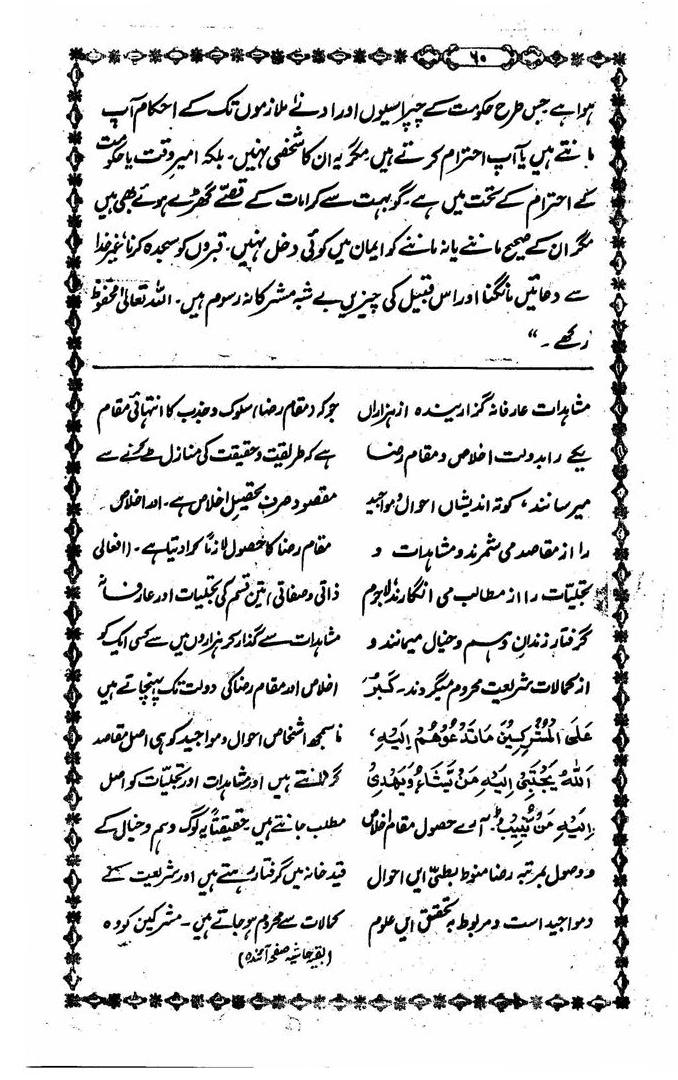 ۶۰
ہوا ہے جس طرح حکومت کے چپراسیوں اور ادنےٰ ملازموں تک کے احکام آپ
مانتے ہیں یا آپ احترام کرتے ہیں۔ مگر یہ ان کا شخصی نہیں۔ بلکہ امیر وقت یا حکومت
کے احترام کے تحت میں ہے۔ گو بہت سے کرامات کے قصّے گھڑے ہوئے بھی ہیں
مگر ان کے صحیح ماننے یا نہ ماننے کو ایمان میں کوئی دخل نہیں۔ قبروں کو سجدہ کرنا، غیر خدا
سے دعائیں مانگنا اور اس قبیل کی چیزیں بے شبہ مشرکانہ رسوم ہیں۔ اللہ تعالیٰ محفوظ
رکھے۔“
مشاہدات عارفانہ گزارینده از ہزاراں
یکے را بدولت اخلاص و مقام رضا
میرسانند، کوتہ اندیشاں احوال و مواجید
را از مقاصد می شمرند و مشاہدات و
تجلیّات را از مطالب می انگارند لاجرم
گرفتار زندانِ وہم و خیال میمانند و
از کمالات شریعت محروم میگردند۔ کَبُرَ
عَلَى الْمُشْرِكِيْنَ مَا تَدْعُوْهُمْ اِلَيْهِ،
اَللهُ يَجْتَبِىْ اِلَيْهِ مَنْ يَّشَاءُ وَيَهْدِىْ
اِلَيْهِ مَنْ يُّنِيْبُ۔ آرے حصول مقام اخلاص
و وصول بمرتبہ رضا منوط بطئی ایں احوال
و مواجید است و مربوط بہ تحقق ایں علوم
جو کہ (مقام رضا) سلوک و جذب کا انتہائی مقام
ہے کہ طریقت و حقیقت کی منازل طے کرنے سے
مقصود صرف تحصیل اخلاص ہے۔ اور اخلاص
مقام رضا کا حصول لازماً کرا دیتا ہے۔ (افعالی
ذاتی و صفاتی) تین قسم کی تجلیات اور عارفانہ
مشاہدات سے گذار کر ہزاروں میں سے کسی ایک کو
اخلاص اور مقام رضا کی دولت تک پہنچاتے ہیں
ناسمجھ اشخاص احوال و مواجید کو ہی اصل مقاصد
گردانتے ہیں اور مشاہدات اور تجلیّات کو اصل
مطلب جانتے ہیں۔ حقیقتاً یہ لوگ وہم و خیال کے
قید خانہ میں گرفتار رہتے ہیں اور شریعت کے
کمالات سے محروم ہو جاتے ہیں۔ مشرکین کو وہ
(بقیہ حاشیہ صفحہ آئندہ)